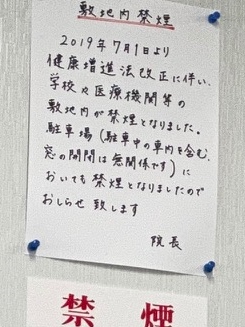 敷地内禁煙
2019年7月1日より
健康増進法改正に伴い、
学校や医療機関等の
敷地内が禁煙となりました。
駐車場(駐車中の車内を含む、
窓の開閉は無関係です)に
おいても禁煙となりましたので
おしらせ致します
院長
禁煙